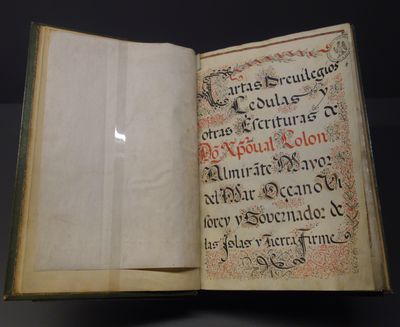 Cartas Previlegios
Cedulas y
otras Escrituras de
Dō Xpōual Colon
Almirāte Mayor
del Mar Oceano Vi
sorey y Governador de
las Islas y Tierra Firme